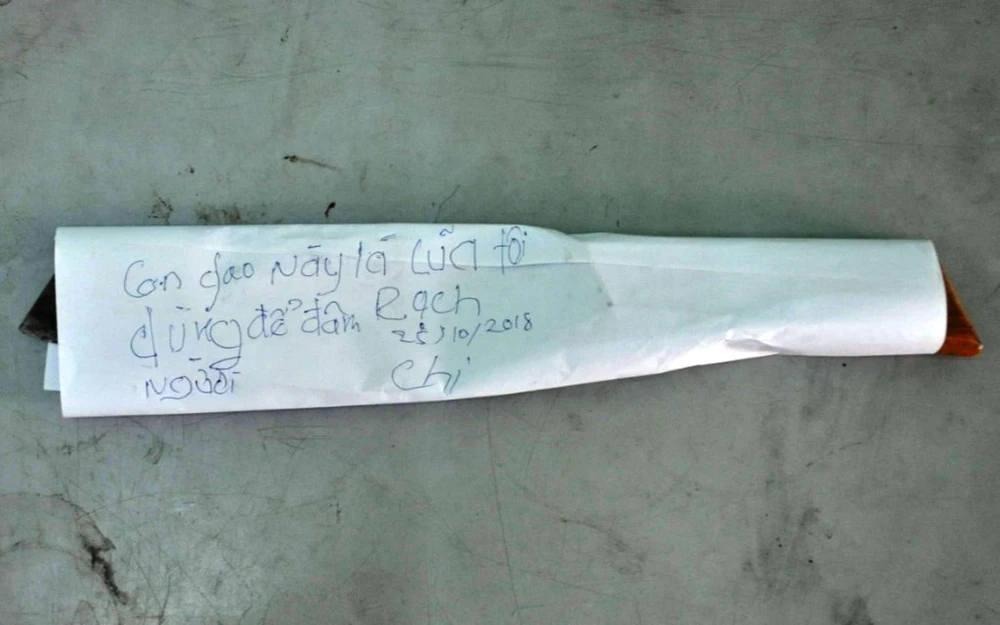 Con dao Này là Của tôi
dùng để đâm Rạch
25/10/2018
Người
chi